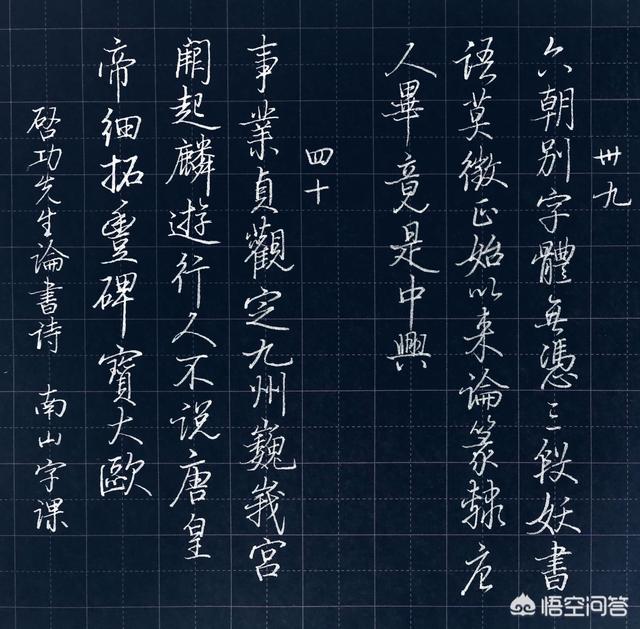 卅九
六朝别字體無憑三段妖書
語莫徵正始以来論篆隸唐
人畢竟是中興
四十
事業貞觀定九州巍峩宫
闕起麟遊行人不说唐皇
帝细拓豊碑寶大歐
啓功先生論書诗 南山字课
悟空问答